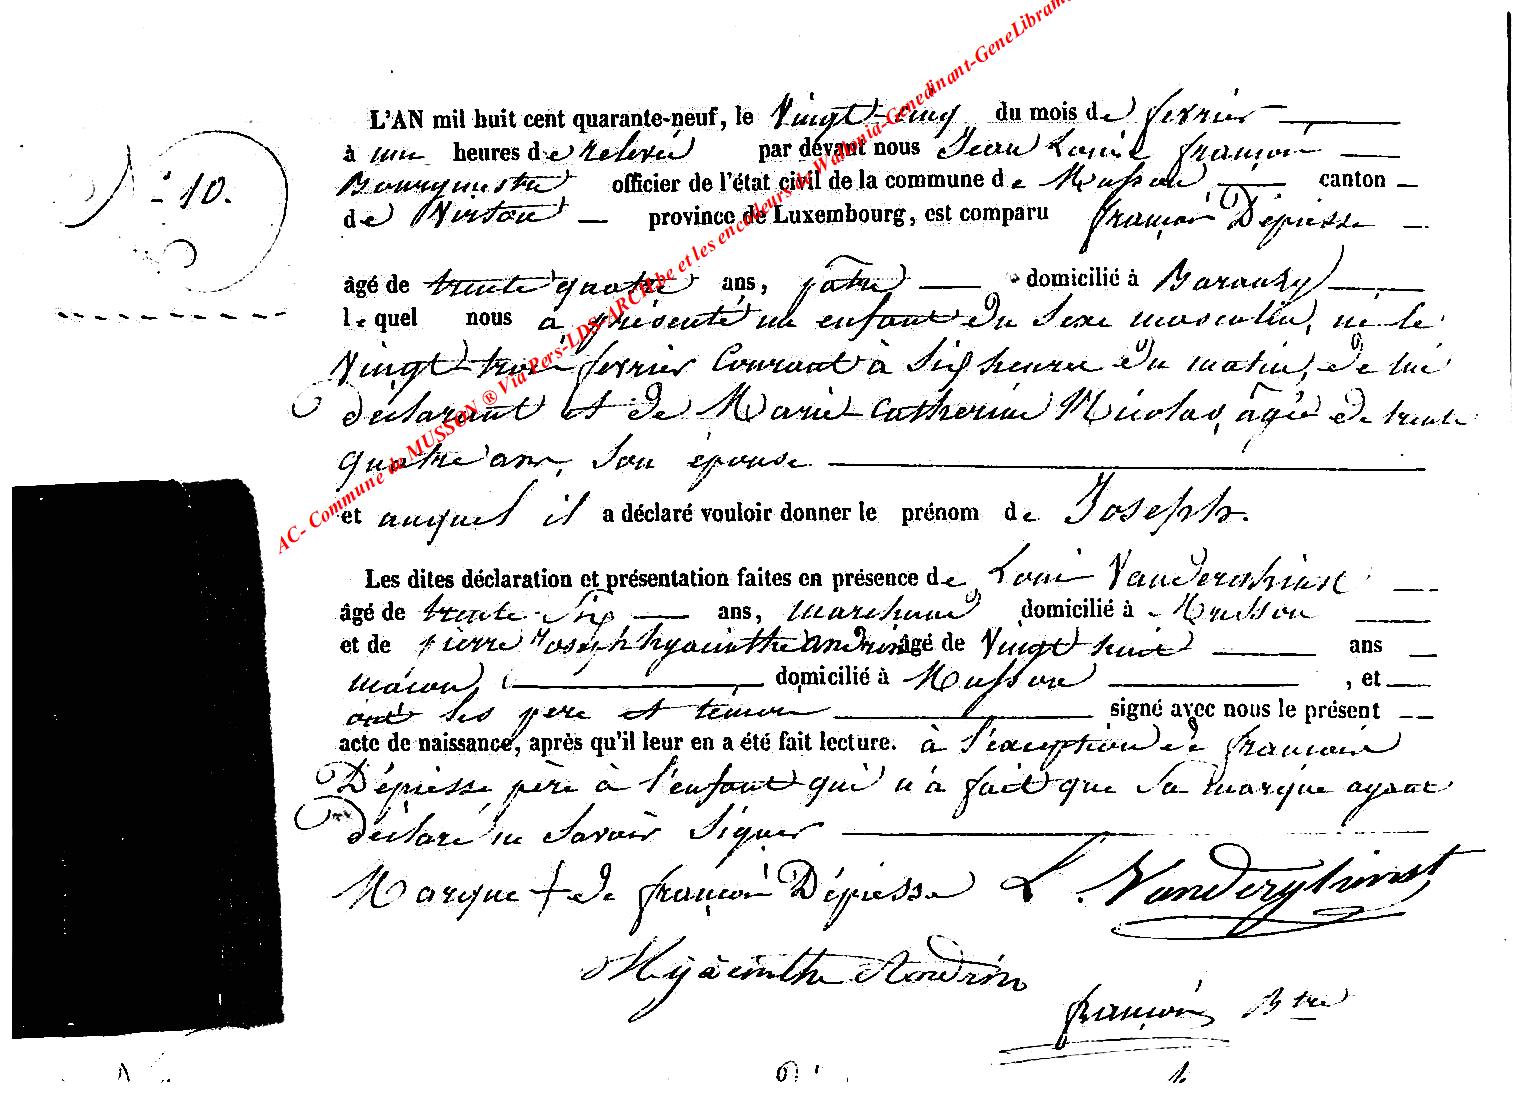 AC- Commune de MUSSON ® Via Pers-LDS-ARCH.be et les encodeurs de Wallonia-Genedinant-GeneLibramo
L'AN mil huit cent quarante-neuf, le Vingt-cinq du mois de fevrier
N° 10.
à une heures de relevée par devant nous Jean Louis françois
Bourgmestre officier de l'état civil de la commune de Musson, canton
de Virton province de Luxembourg, est comparu françois Dépiesse
âgé de trente quatre ans, pâtre domicilié à Baranzy
lequel nous a présenté un enfant du sexe masculin, né le
Vingt-trois fevrier Courant à Six heures du matin, de lui
déclarant et de Marie-Catherine Nicolas, âgée de trente
quatre ans, Son épouse
et auquel il a déclaré vouloir donner le prénom de Joseph.
Les dites déclaration et présentation faites en présence de Louis
âgé de trente-Six ans, marchand domicilié à Musson
et de pierre Joseph hyacinthe andrin âgé de Vingt huit ans
macon, domicilié à Musson , et
ont les père et témoin signé avec nous le présent
acte de naissance, après qu'il leur en a été fait lecture. à l'exception de françois
Dépiesse père à l'enfant qui n'a fait que Sa marque ayant
déclaré ne Savoir Signer
Marque + de françois Dépiesse L.
Hyacinthe Andrin
françois Btre